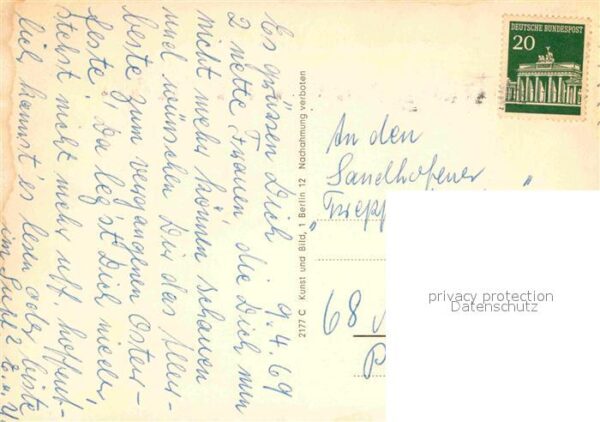 9.4.69
Es grüssen Dich
2 nette Frauen, die Dich nun
nicht mehr können schauen
und wünschen Dir das Aller-
beste zum vergangenen Oster-
feste, Da legst Dich nieder,
stehst nicht mehr uff. hoffent-
lich kannst es lesn oder biste
im
2177 C Kunst und Bild, 1 Berlin 12 Nachahmung verboten
DEUTSCHE BUNDESPOST
20
An den
Sandhofener
"
68
privacy protection
Datenschutz